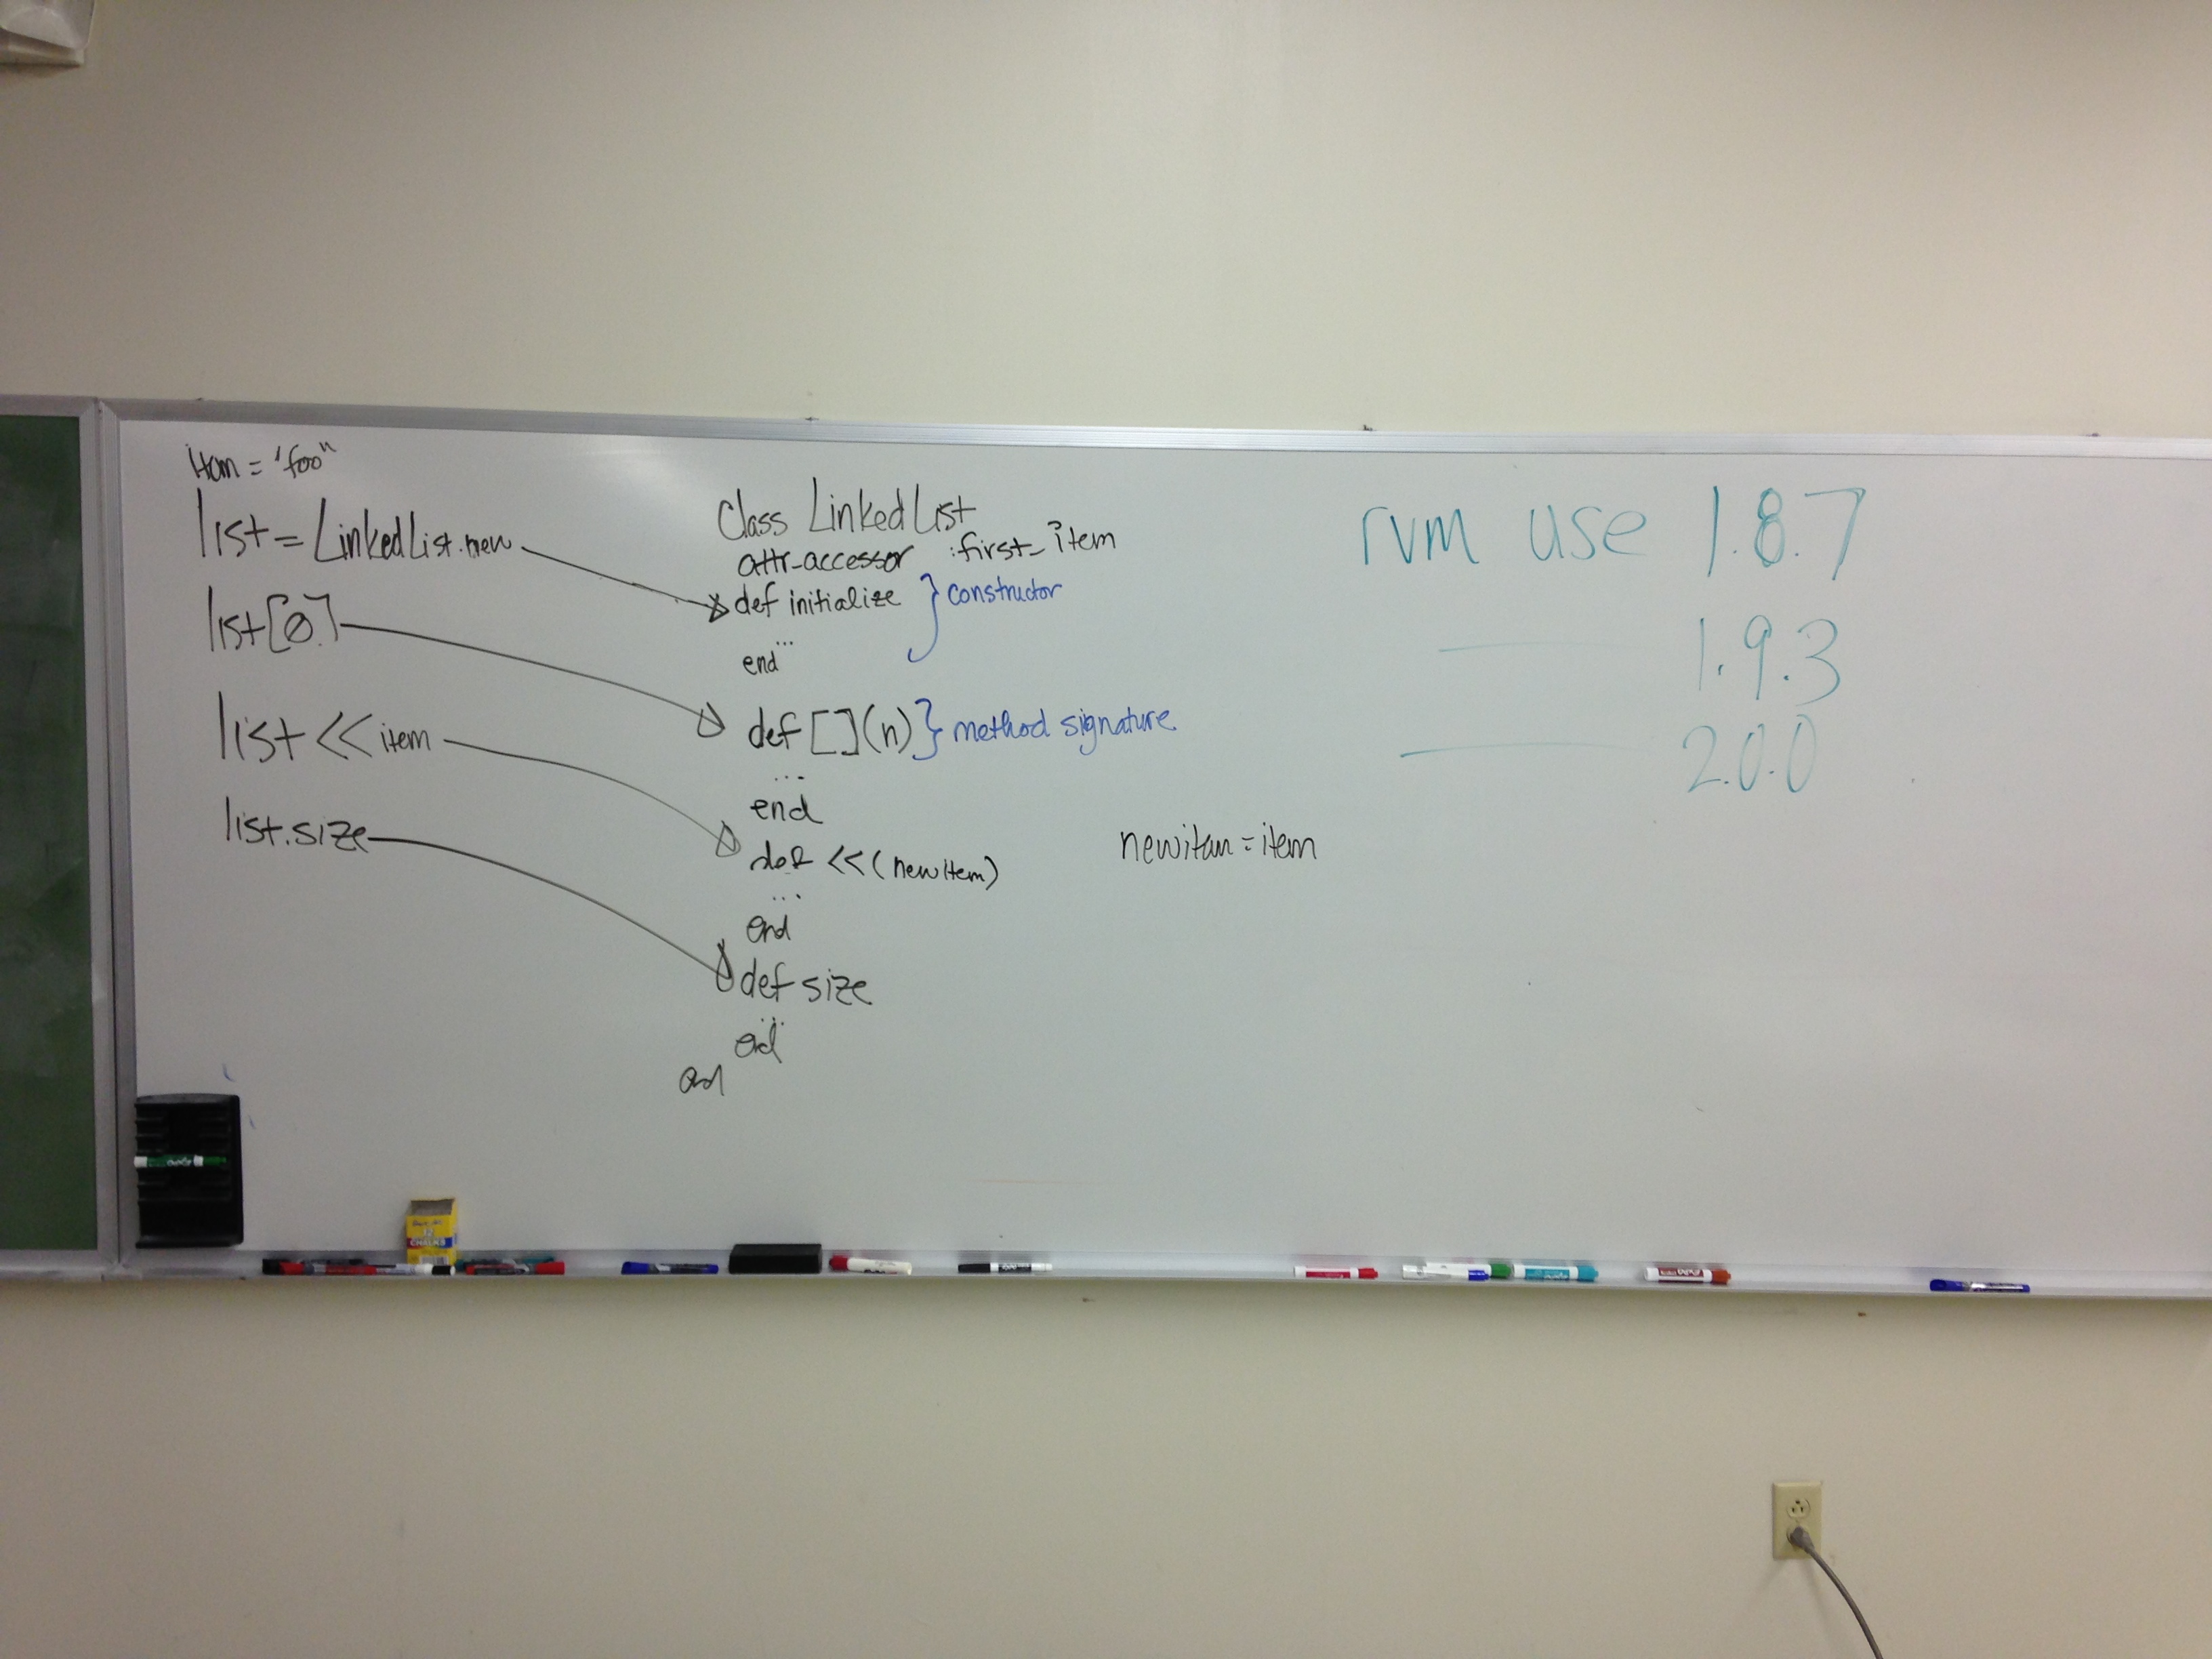 item = "foo"
list = LinkedList.new
list[0]
list << item
list.size
class LinkedList
attr_accessor :first_item
def initialize } constructor
...
end
def [](n) } method signature
...
end
def <<(newitem)
...
end
def size
...
end
end
newitem = item
rvm use 1.8.7
1.9.3
2.0.0
CHALKS
EXPO